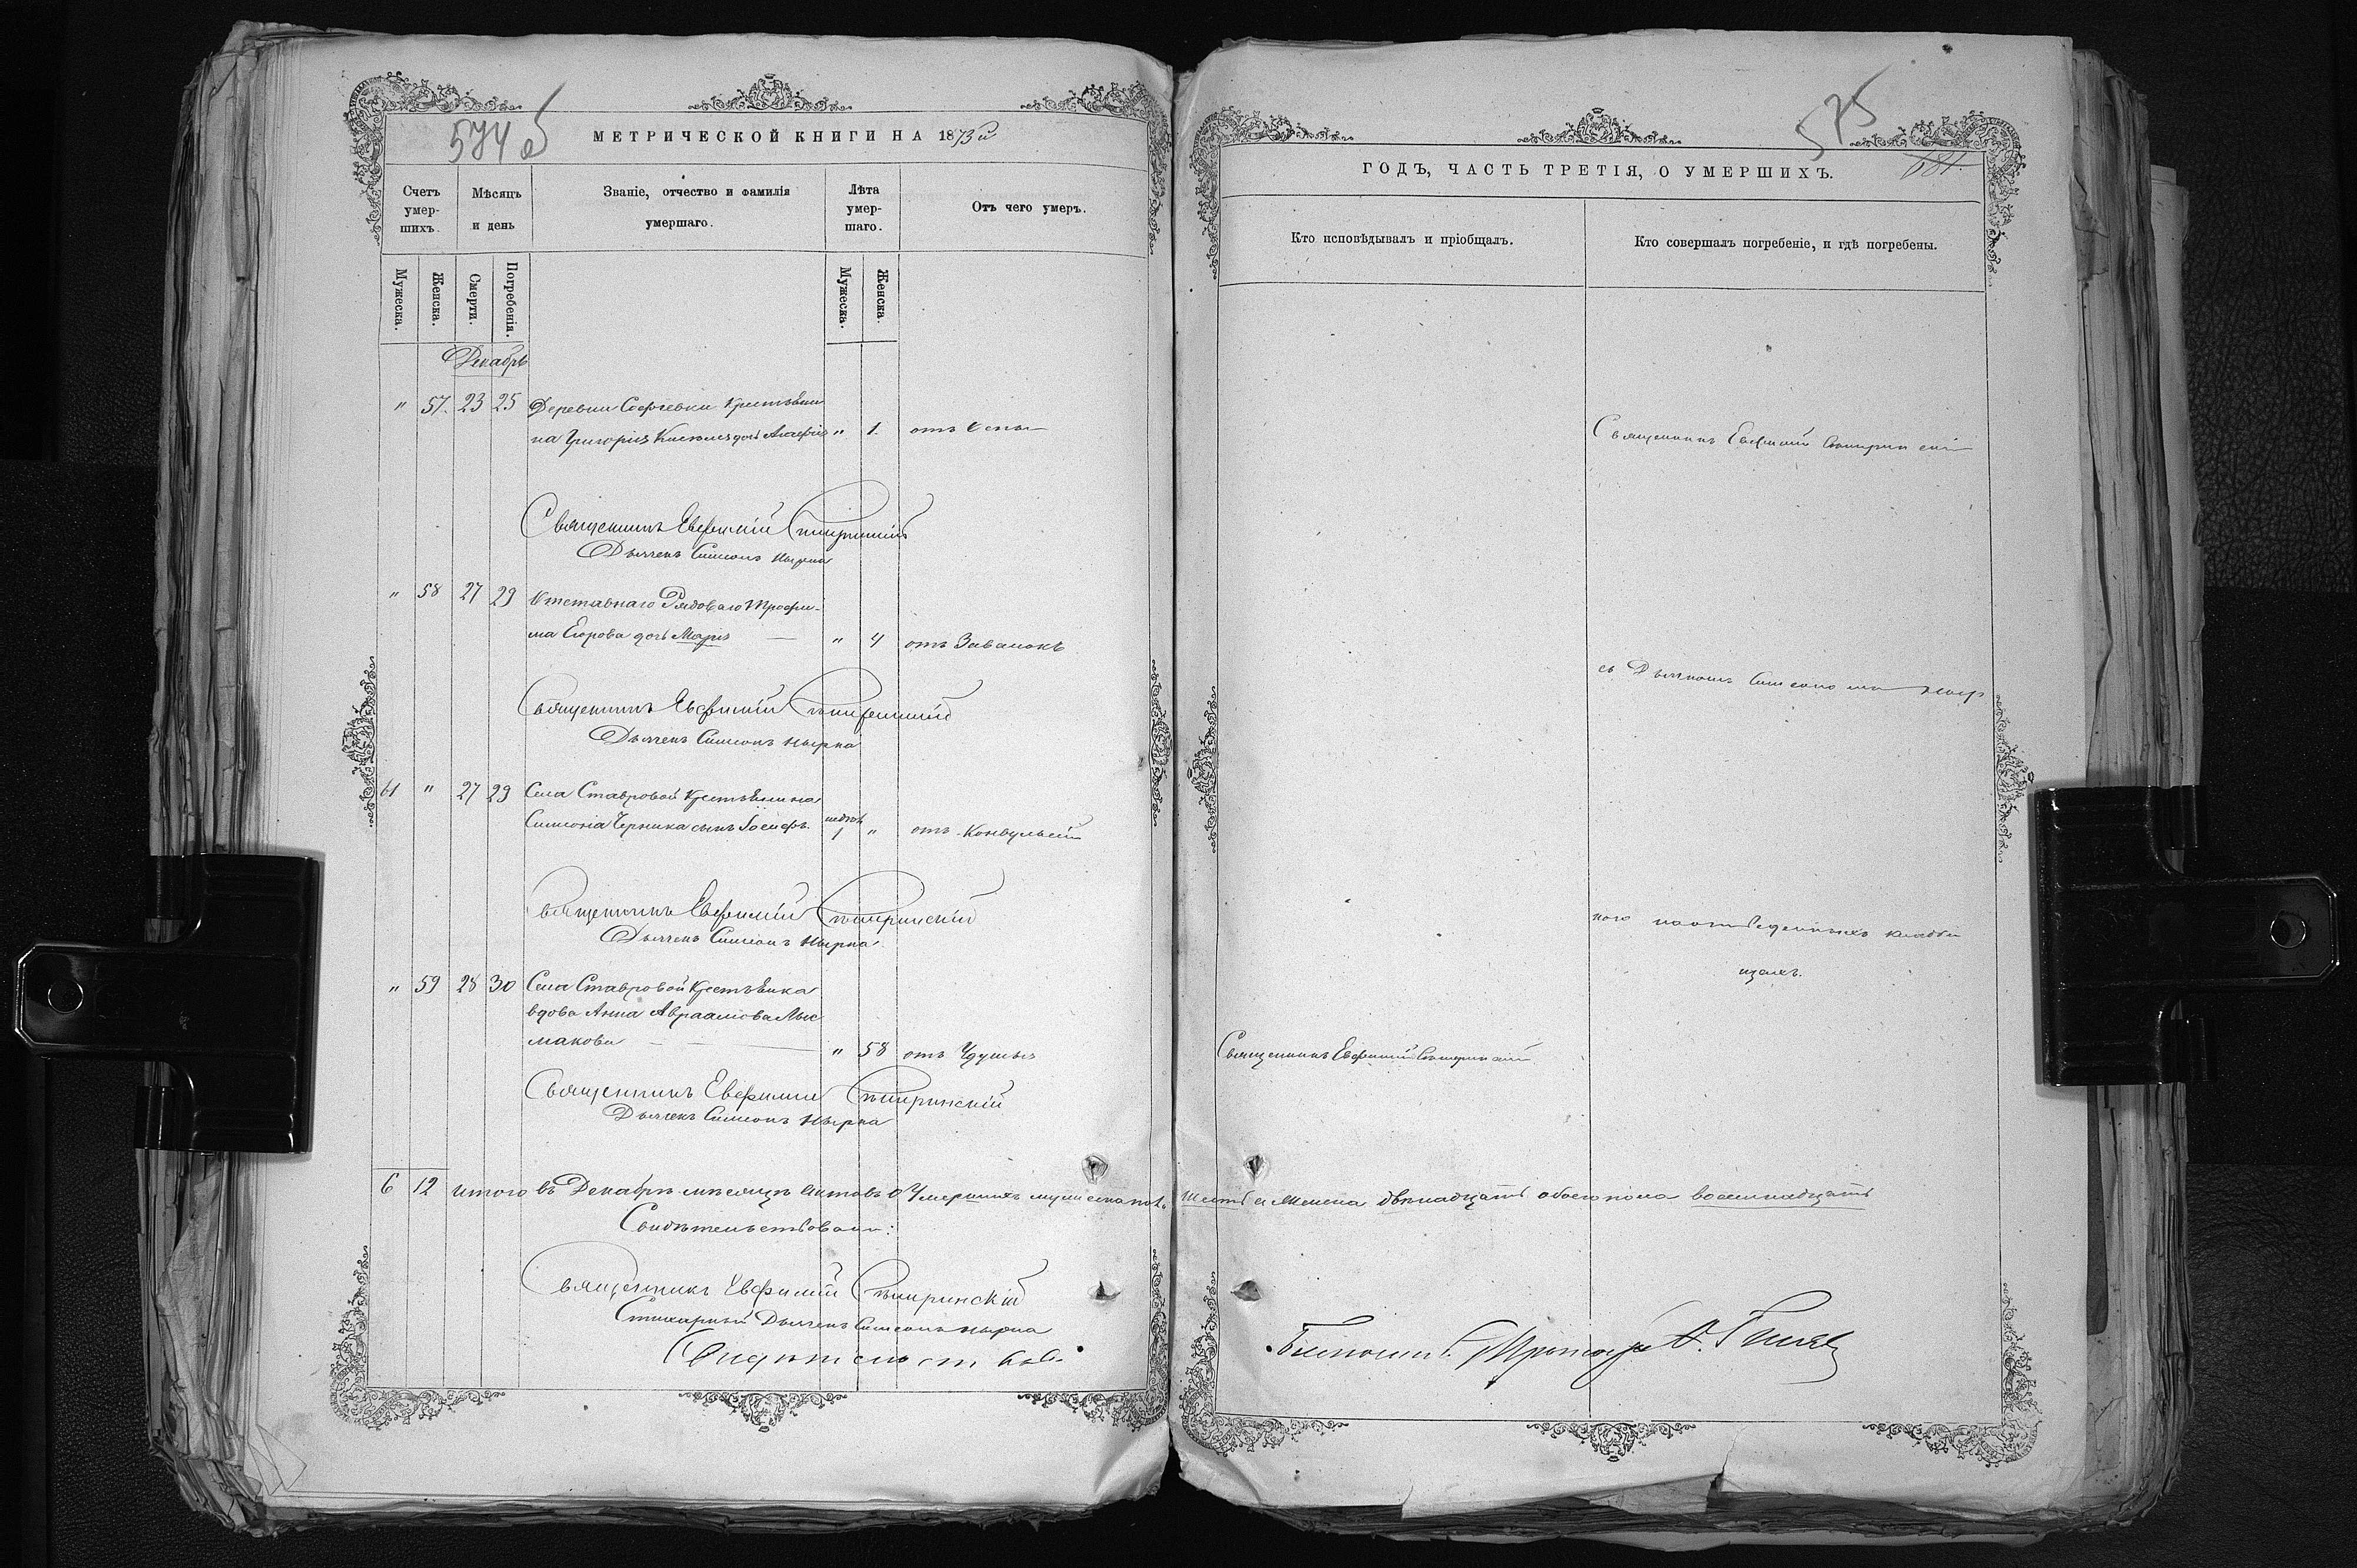 574 об
МЕТРИЧЕСКОЙ КНИГИ НА 1873й
Счетъ умер-шихъ.
Мѣсяцъ и день
Званіе, отчество и фамилія умершаго.
Лѣта умер-шаго.
Отъ чего умеръ.
Мужеска.
Женска.
Смерти.
Погребенія.
Мужеска.
Женска.
Декабрь
" 57. 23 25 Деревни Софіевки Крестьяни
на Григорія дочь " 1. отъ Оспы
Священникъ Евфимій
Дьячекъ Симеонъ Нырка
" 58 27 29 Отставнаго Рядоваго Трофи-
ма Егорова дочь Марія — " 4 отъ Завалокъ
Священникъ Евфимій
Дьячекъ Симеонъ Нырка
61 " 27 29 Села Ставровой Крестьянина
Симеона Черника сынъ Іосифъ. 1 " отъ Конвульсій
Священникъ Евфимій
Дьячекъ Симеонъ Нырка
" 59 28 30 Села Ставровой Крестьянка
вдова Анна Авраамова Лыс
макова — — " 58 отъ Удушья
Священникъ Евфимій
Дьячекъ Симеонъ Нырка
6 12 Итого въ Декабрѣ мѣсяцѣ актовъ о Умершихъ мужеска пол.
Свидѣтельствовали:
Священникъ Евфимій
Стихарный Дьячекъ Симеонъ Нырка
575
681.
ГОДЪ, ЧАСТЬ ТРЕТІЯ, О УМЕРШИХЪ.
Кто исповѣдывалъ и пріобщалъ.
Кто совершалъ погребеніе, и гдѣ погребены.
Священникъ Евфимій
съ Дьячкомъ Симеономъ Ныр
кого на отведенныхъ кладби
щахъ.
Священникъ Евфимій
шесть а женска двѣнадцать обоего пола восемнадцать